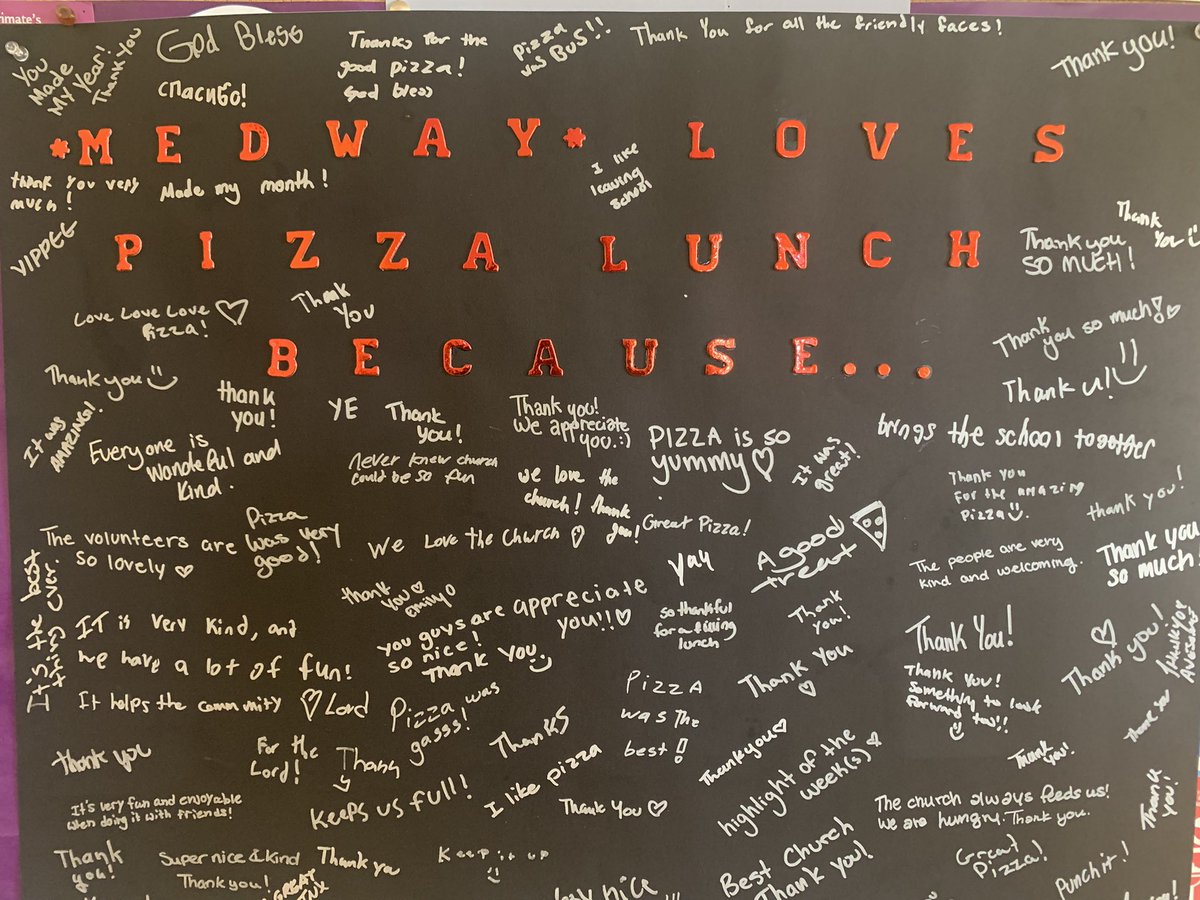 imate's
You
Made
My Year!
Thank you
God Bless
спасибо!
Thanks for the
good pizza!
God bless
Pizza
was BUS!!
Thank You for all the friendly faces!
Thank you!
*MEDWAY* LOVES
thank you very
much!
Made my month!
I like
leaving
school
YIPPEE
PIZZA LUNCH
Thank
You
Thank you
SO MUCH!
Love Love Love
Pizza!
Thank
you
Thank
you so much!
BECAUSE...
Thank you
Thank u!
thank
you!
YE
Thank
You!
Thank you!
We appreciate
you. :)
It was
AMAZING!
Everyone is
wonderful and
kind.
never knew church
could be so fun
we love the
church! thank
you!
PIZZA is so
yummy
It was
great!
brings the school together
Thank you
for the amazing
pizza
thank you!
The volunteers are
so lovely
Pizza
was very
good!
We Love the Church
Great Pizza!
yay
A good
treat
The people are very
kind and welcoming.
Thank you
so much
It's the best
thing ever.
thank
you
you guys are
so nice!
appreciate
you!!
Thank you
so thankful
for a filling
lunch
Thank
you!
Thank You!
Thank you!
IT is very kind, and
we have a lot of fun!
It helps the community
Lord
Pizza was
gasss!
Thanks
Pizza
was the
best!!
Thank You
Thank You!
Something to look
forward too!!
thank you
thank you
For the
Lord!
Thank
Keeps us full!
I like pizza
Thank you
highlight of the
week(s)
Thank
you!
It's very fun and enjoyable
when doing it with friends!
Thank You
The church always feeds us!
We are hungry. Thank you.
Thank
you!
Thank
you!
Super nice & kind
Thank you!
Thank you
Keep it up
Best Church
Thank you!
Great
Pizza!
Punch it!
GREAT
nice